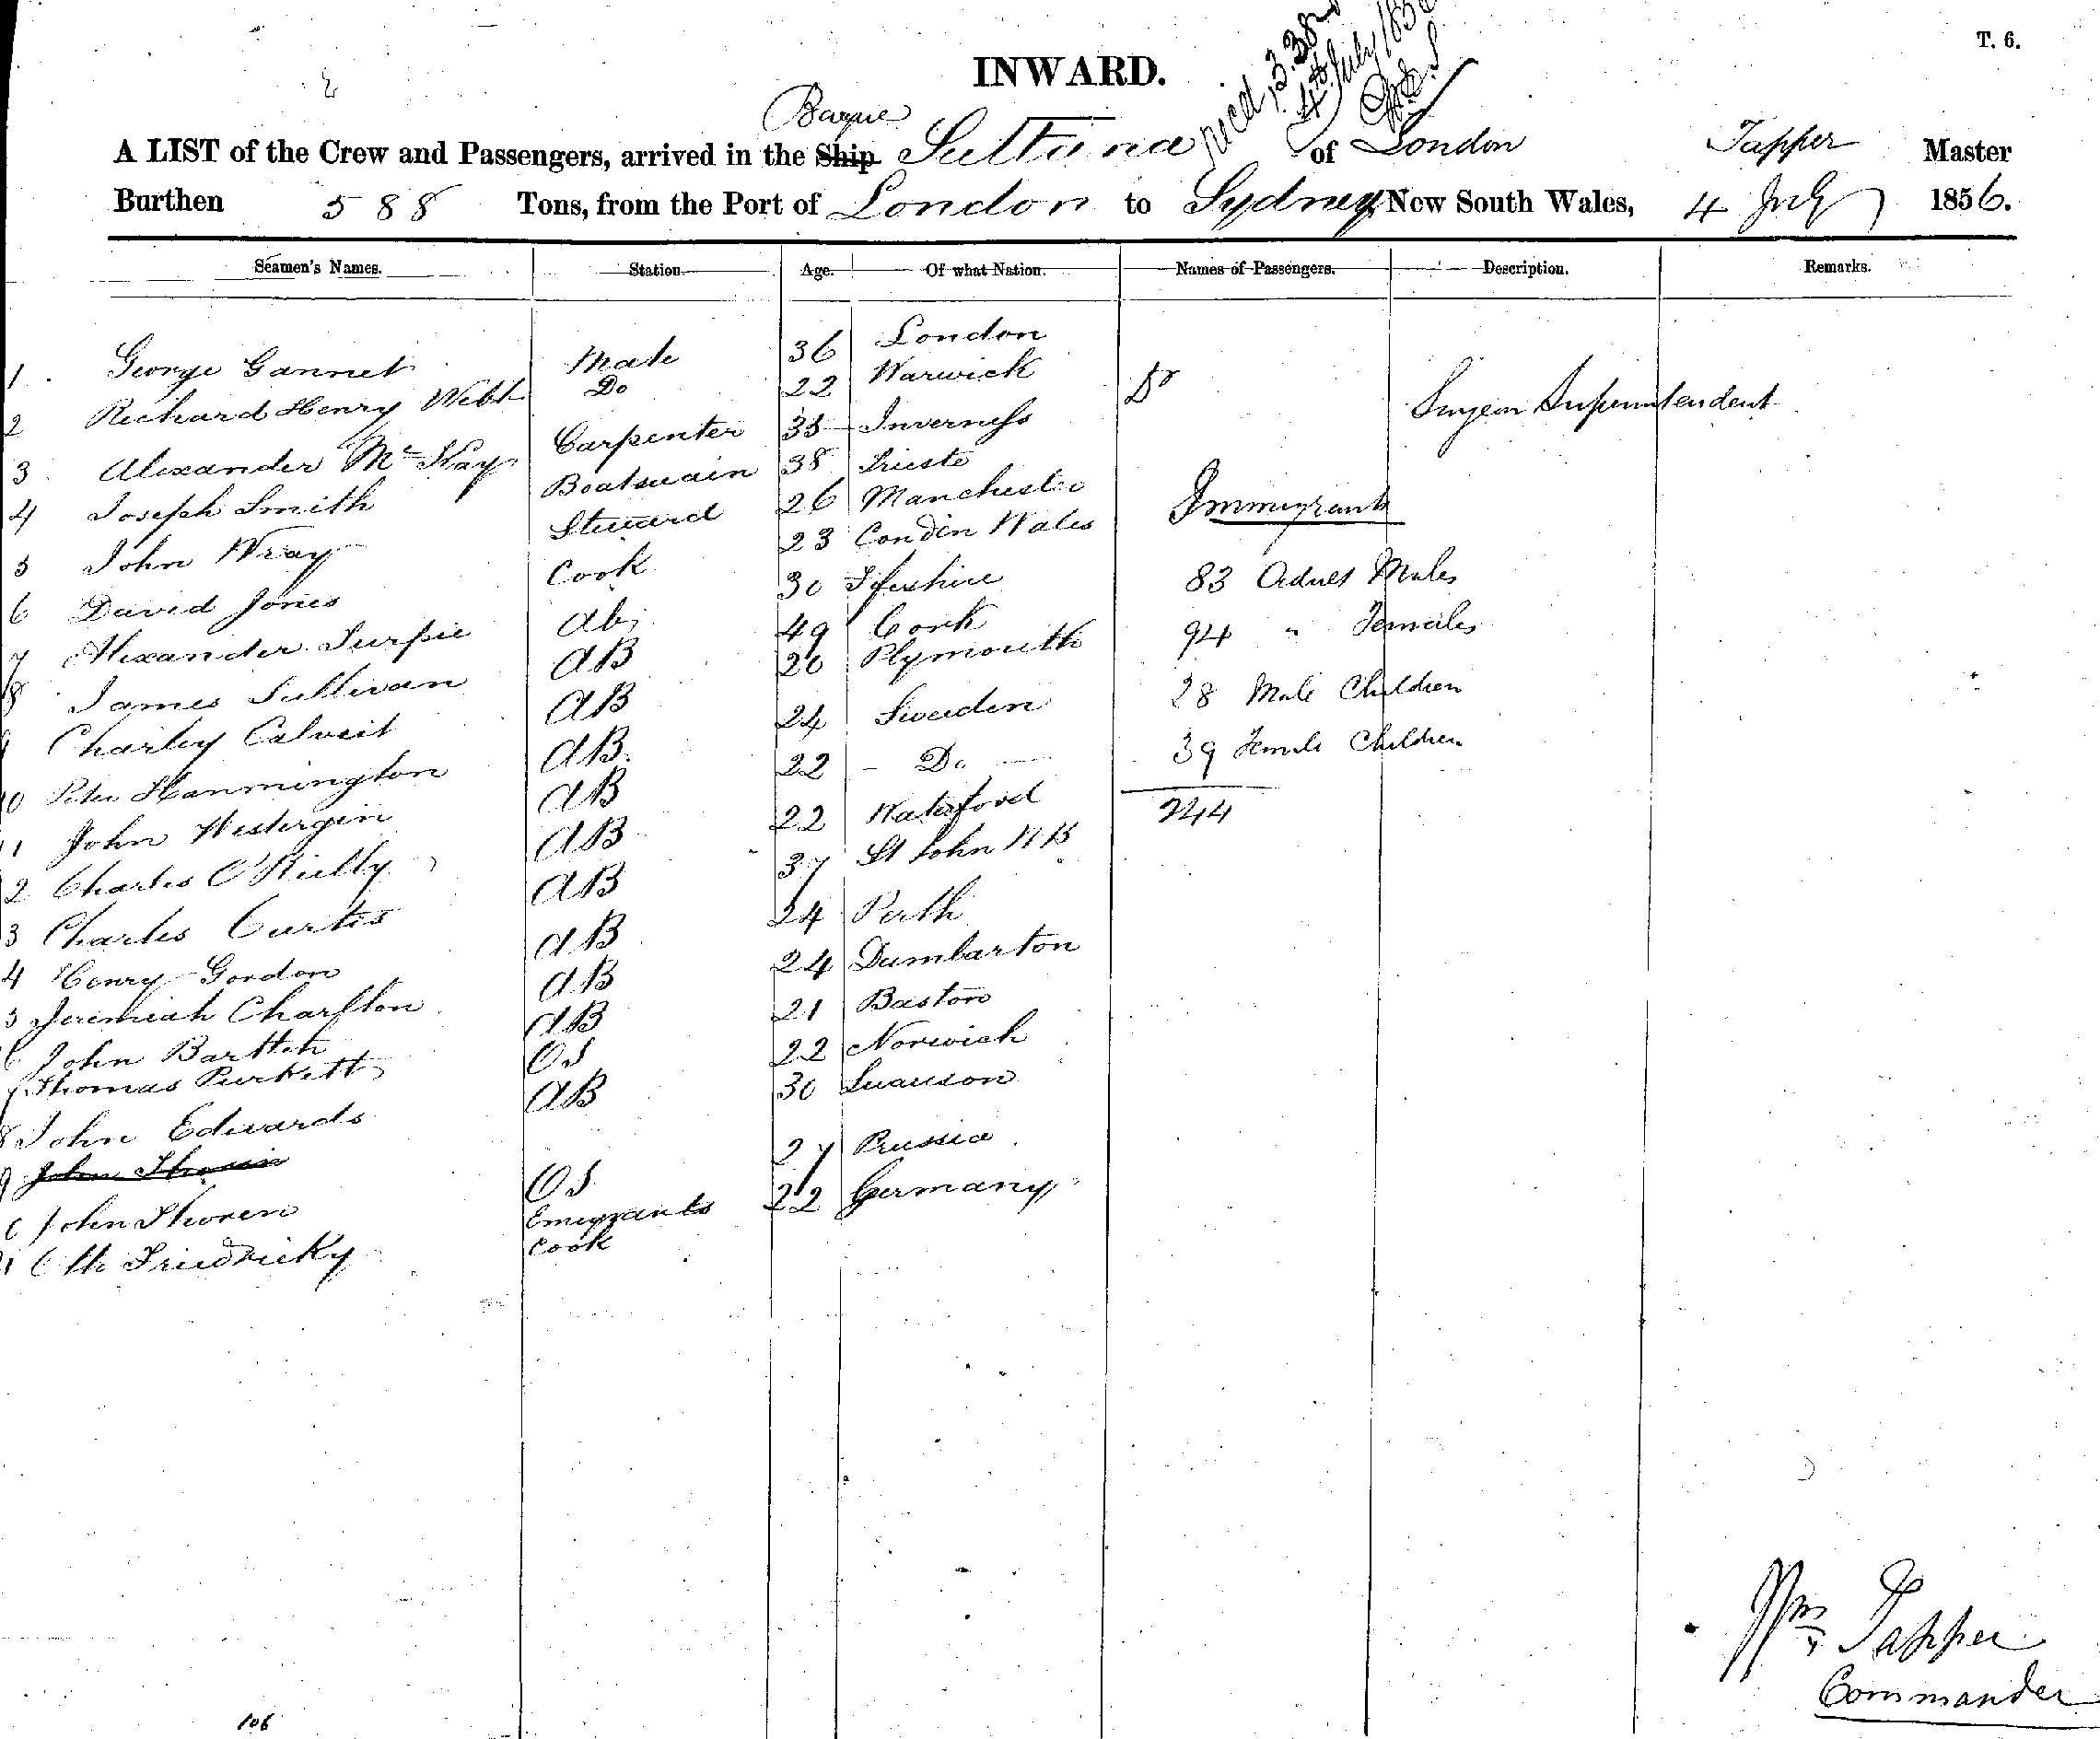 T. 6.
INWARD.
4th July 185
Barque
A LIST of the Crew and Passengers, arrived in the Ship Sultana of London Tapper Master
Burthen 588 Tons, from the Port of London to Sydney New South Wales, 4 July 1856.
Seamen's Names. Station. Age. Of what Nation. Names of Passengers. Description. Remarks.
1 George Gannet Mate 36 London
2 Richard Henry Webb Do 22 Warwick Dr Surgeon Superintendent
3 Alexander McKay Carpenter 33 Inverness
4 Joseph Smith Boatswain 38 Trieste
5 John Wray Steward 26 Manchester Immigrants
6 David Jones Cook 23 Wales
7 Alexander Ab 30 83 Adult Males
8 James Sullivan AB 49 Cork 94 " Females
9 Charley Calvert AB 20 Plymouth 28 Male Children
10 Peter Hanmington AB 24 Sweden 39 Female Children
11 John Westergin AB 22 Do 244
2 Charles O'Rielly AB 22 Waterford
3 Charles Curtis AB 37 St John NB
4 Henry Gordon AB 24 Perth
5 Jeremiah Charlton AB 24 Dumbarton
6 John Bartlett AB 21 Boston
7 Thomas Purkett OS 22 Norwich
8 John Edwards AB 30
9 John
John Thoren OS 27 Prussia
1 Friedricky Emigrants Cook 22 Germany
Wm Tapper
Commander
106